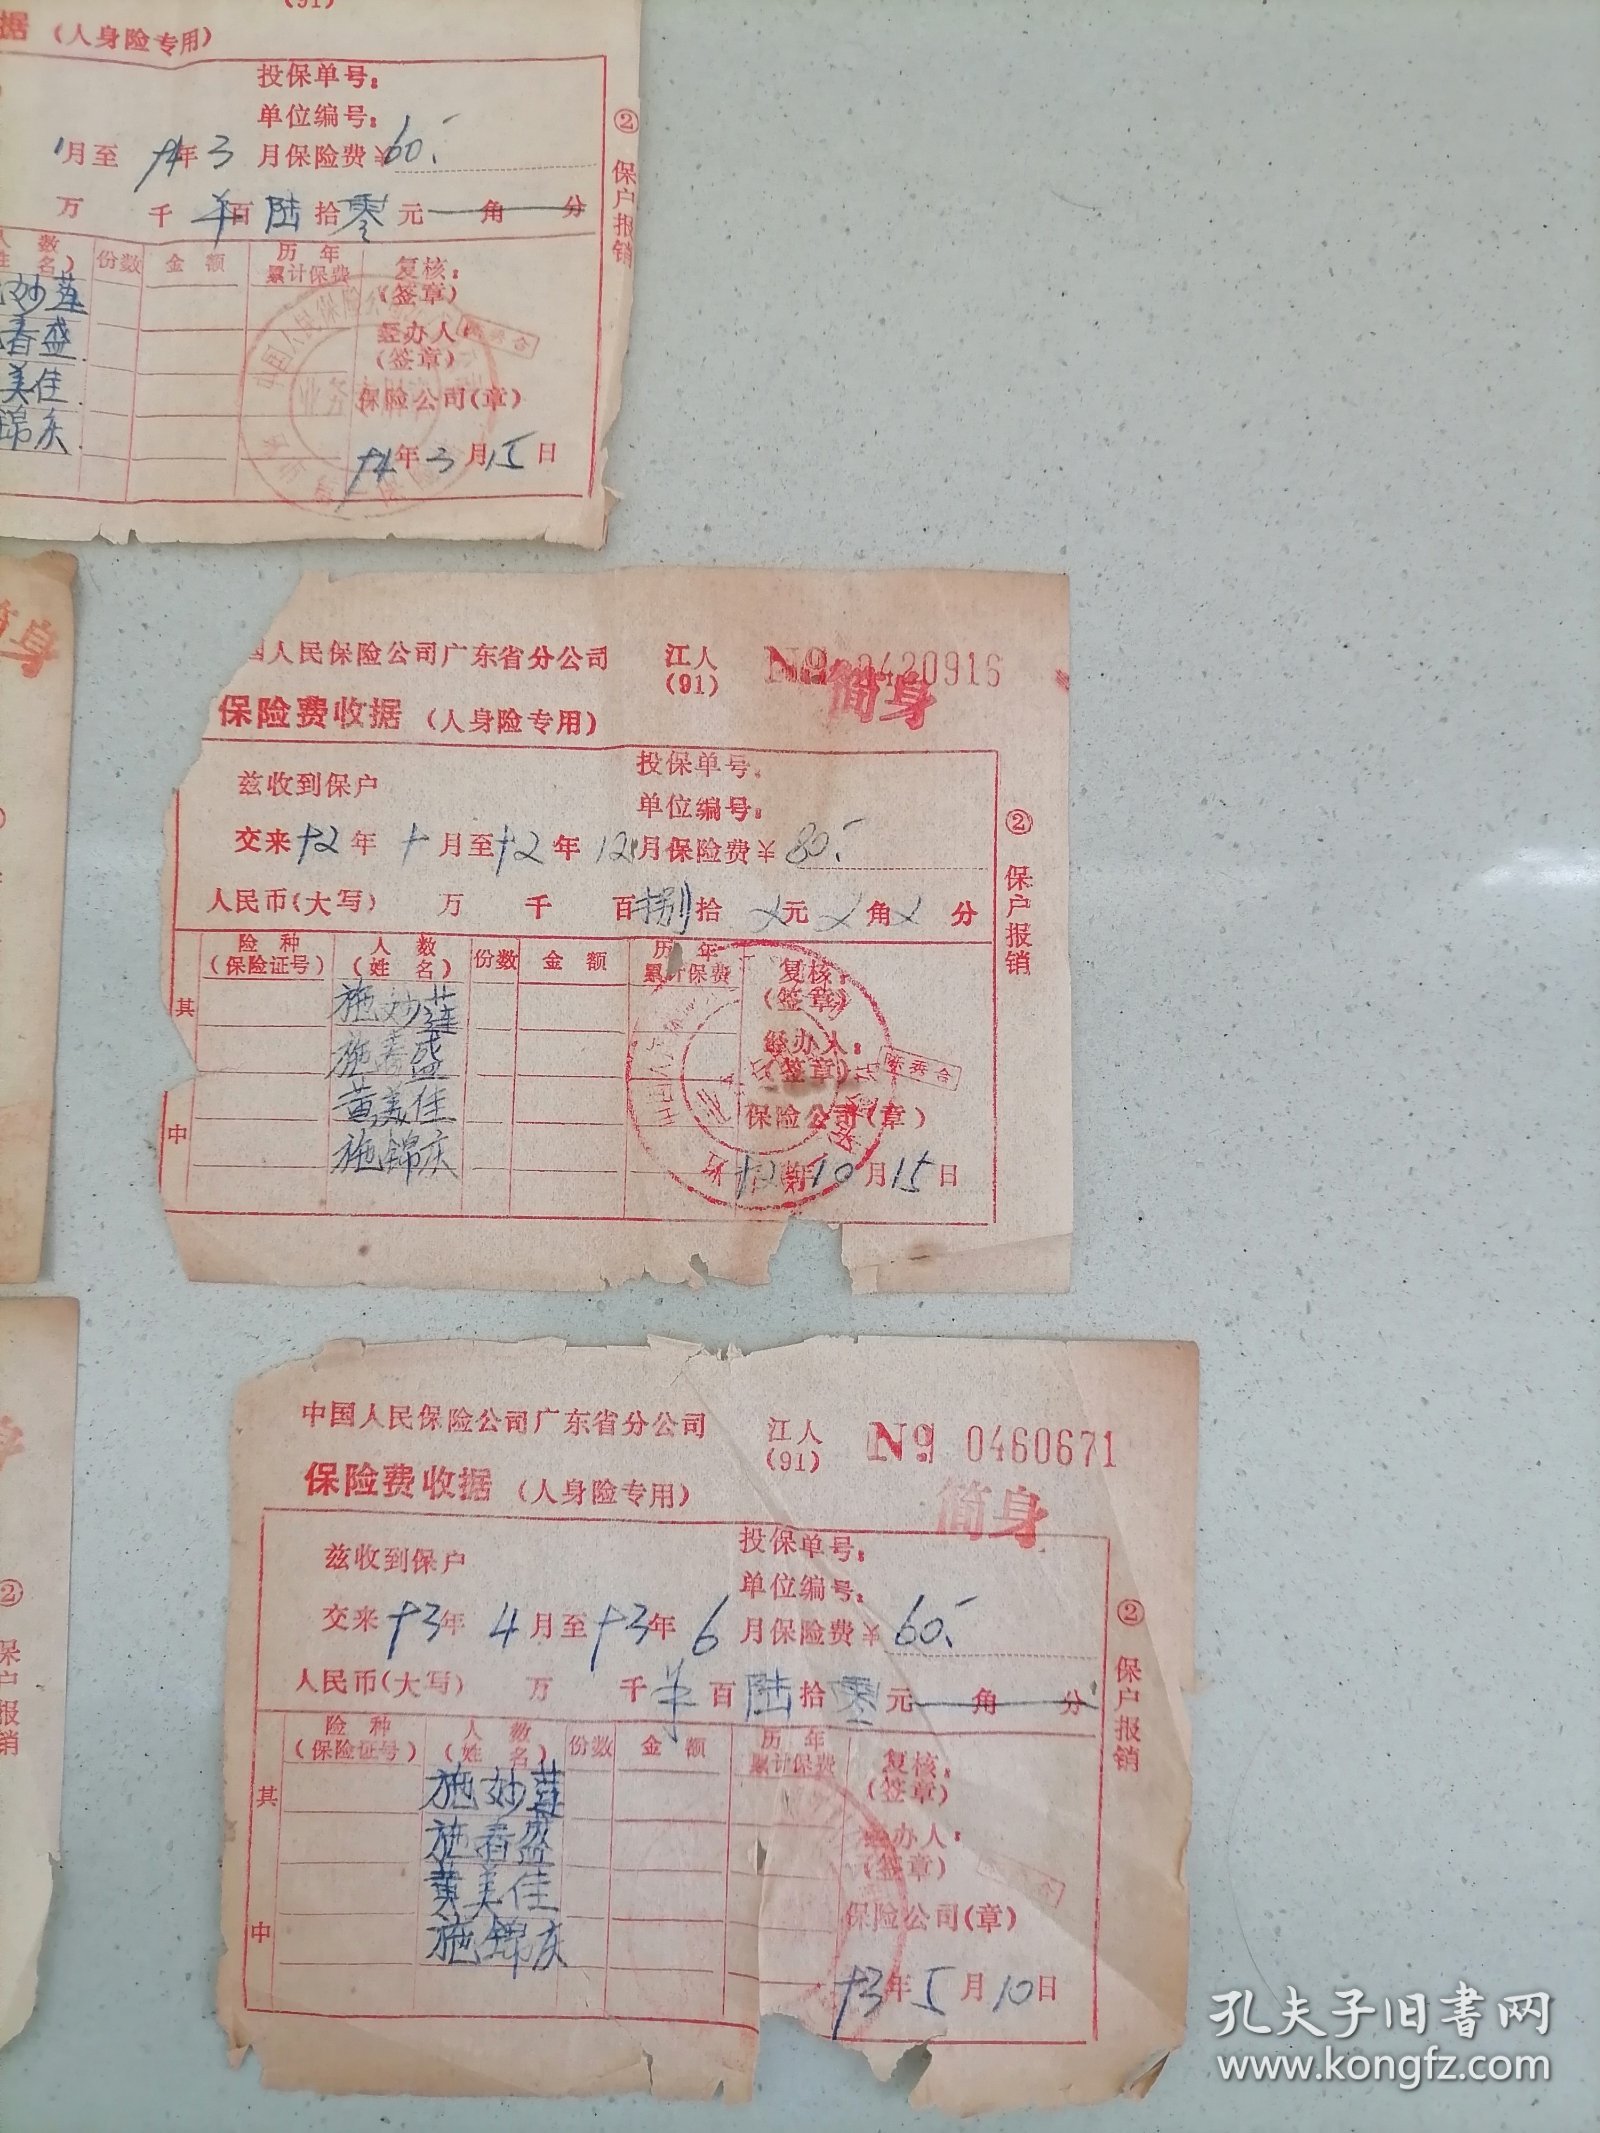 (91)
据（人身险专用）
投保单号：
单位编号：
1月至94年3月保险费¥60.-
万 千 百陆拾零元 角 分
② 保户报销
数 份数 金额 历年累计保费 复核：
名） （签章）
妙莲
春盛 经办人：
（签章）
美佳
保险公司（章）
锦庆
94年3月15日
简身
国人民保险公司广东省分公司 江人 № 0420916
(91)
保险费收据（人身险专用） 简身
兹收到保户 投保单号：
单位编号：
交来92年9月至92年12月保险费¥80.-
人民币（大写） 万 千 百捌拾 元 角 分
② 保户报销
险种 人数 份数 金额 历年 复核：
（保险证号）（姓名） 累计保费 （签章）
其 施妙莲
施春盛 经办人：
（签章） 陈秀合
黄美佳
保险公司（章）
中 施锦庆
92年10月15日
② 保户报销
中国人民保险公司广东省分公司 江人 № 0460671
(91)
保险费收据（人身险专用） 简身
兹收到保户 投保单号：
单位编号：
交来93年4月至93年6月保险费¥60.-
人民币（大写） 万 千 百陆拾零元 角 分
② 保户报销
险种 人数 份数 金额 历年 复核：
（保险证号）（姓名） 累计保费 （签章）
其 施妙莲
施春盛 经办人：
（签章）
黄美佳
保险公司（章）
中 施锦庆
93年5月10日
孔夫子旧书网
www.kongfz.com